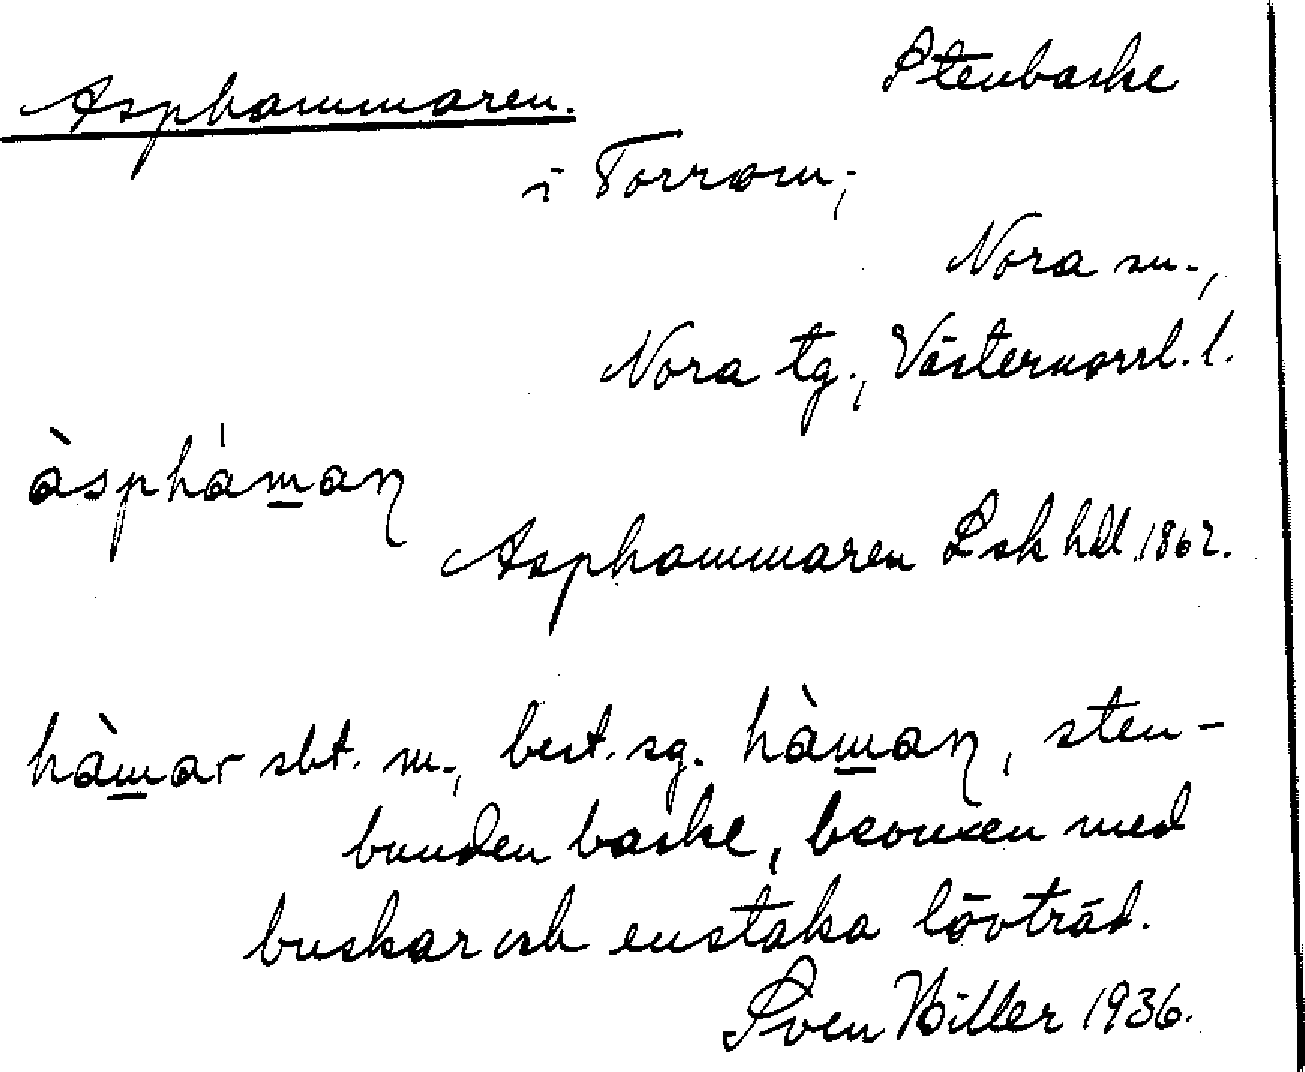 Asphammaren.
Stenbacke
i Torrom,
Nora sn.,
Nora tg., Västernorrl. l.
àspháman
Asphammaren Lsk hdl 1862.
hàmar sbt. m., best. sg. hàman, sten-
bunden backe, bevuxen med
buskar och enstaka lövträd.
Sven Hiller 1936.